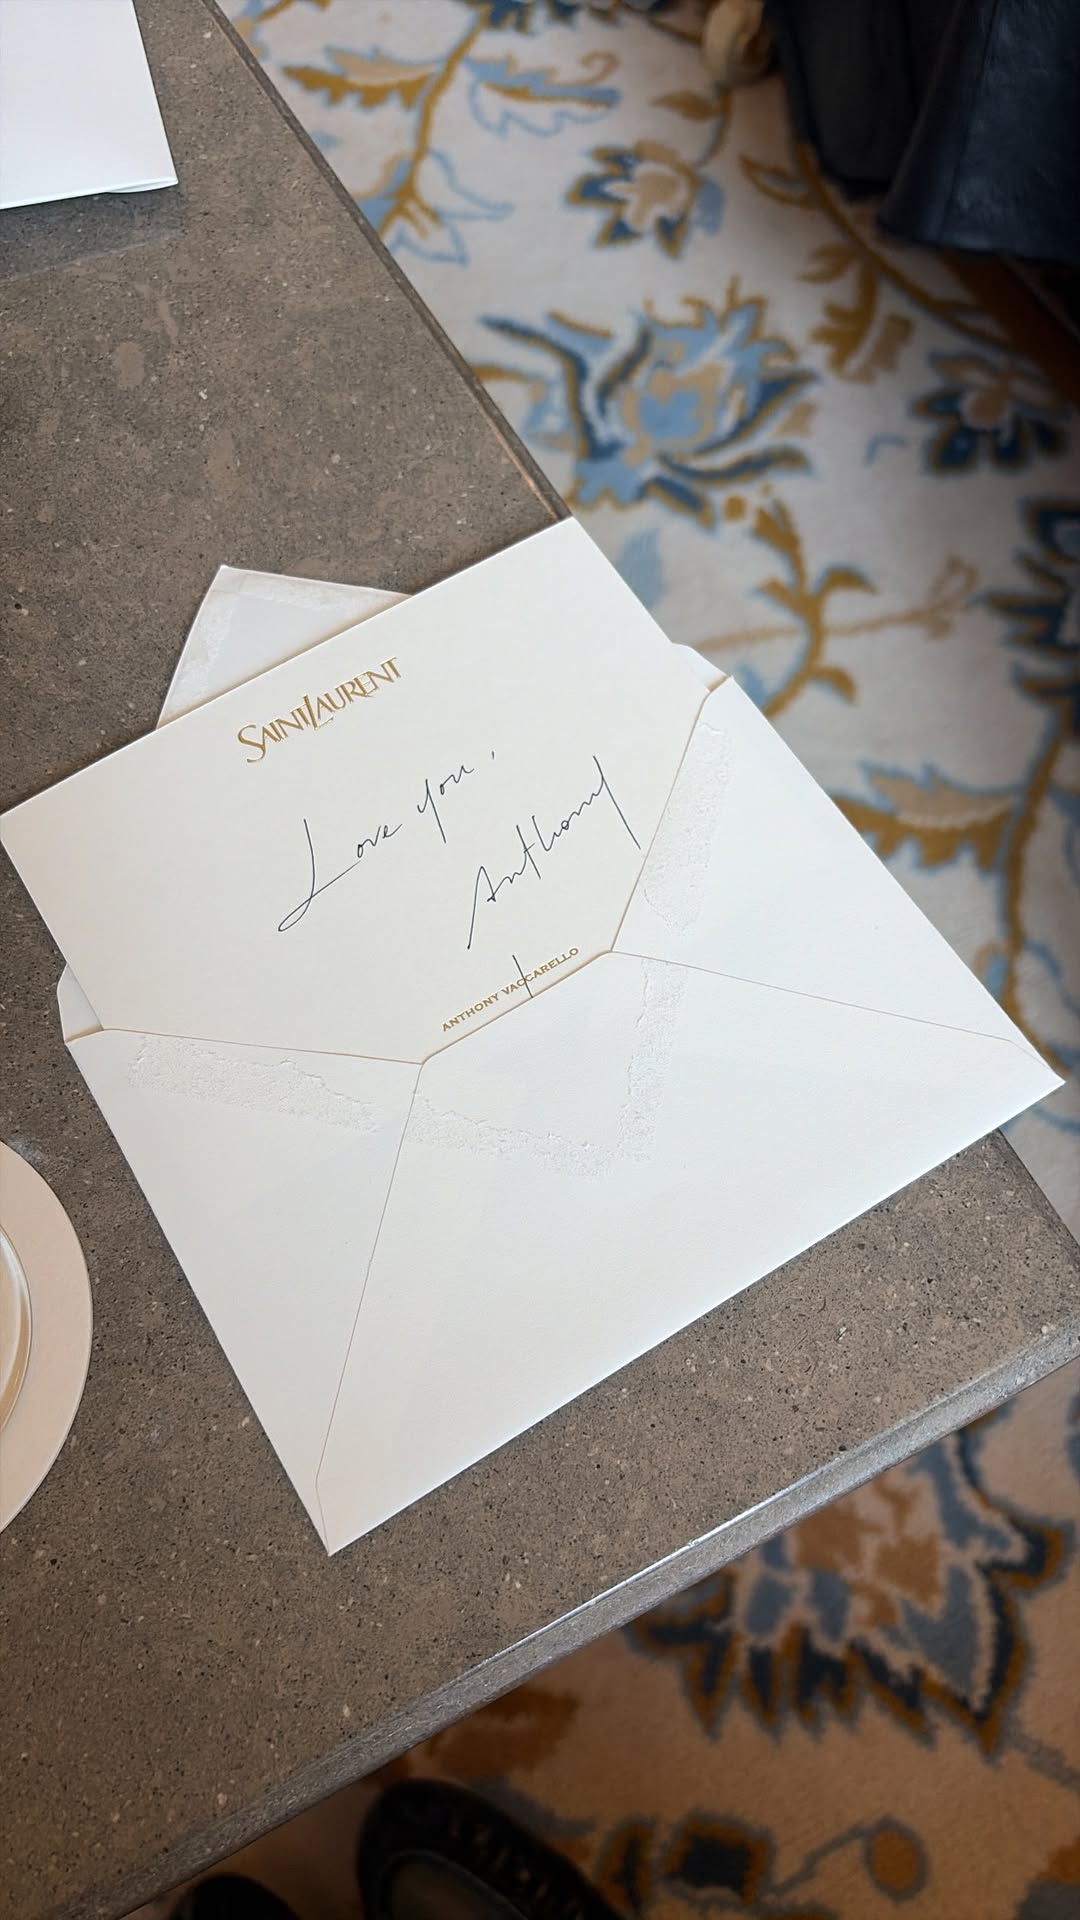 SAINT LAURENT
Love you,
Anthony
ANTHONY VACCARELLO